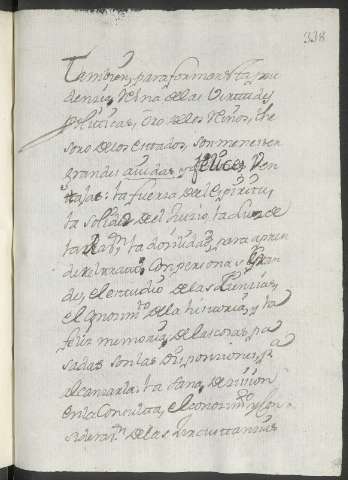 338
Tambien, para formar esta pru
dencia, Reina de las Virtudes
Politicas, oro de los Reinos, the
soro de los estados, son menester
grandes aiudas, y felices Ven
tajas: la fuerza del espiritu,
la solidez del Juicio, la Luz de
la Raçon, la docilidad, para apren
der el trato, con personas Gran
des, el estudio de las Ciencias,
el Conocimto de la historia, y la
feliz memoria, de las cosas pa
sadas son las Disposiciones, pa
alcanzarla: la sana, decision
en la Consulta, el conocimto y Con
sideraon de las circunstancias